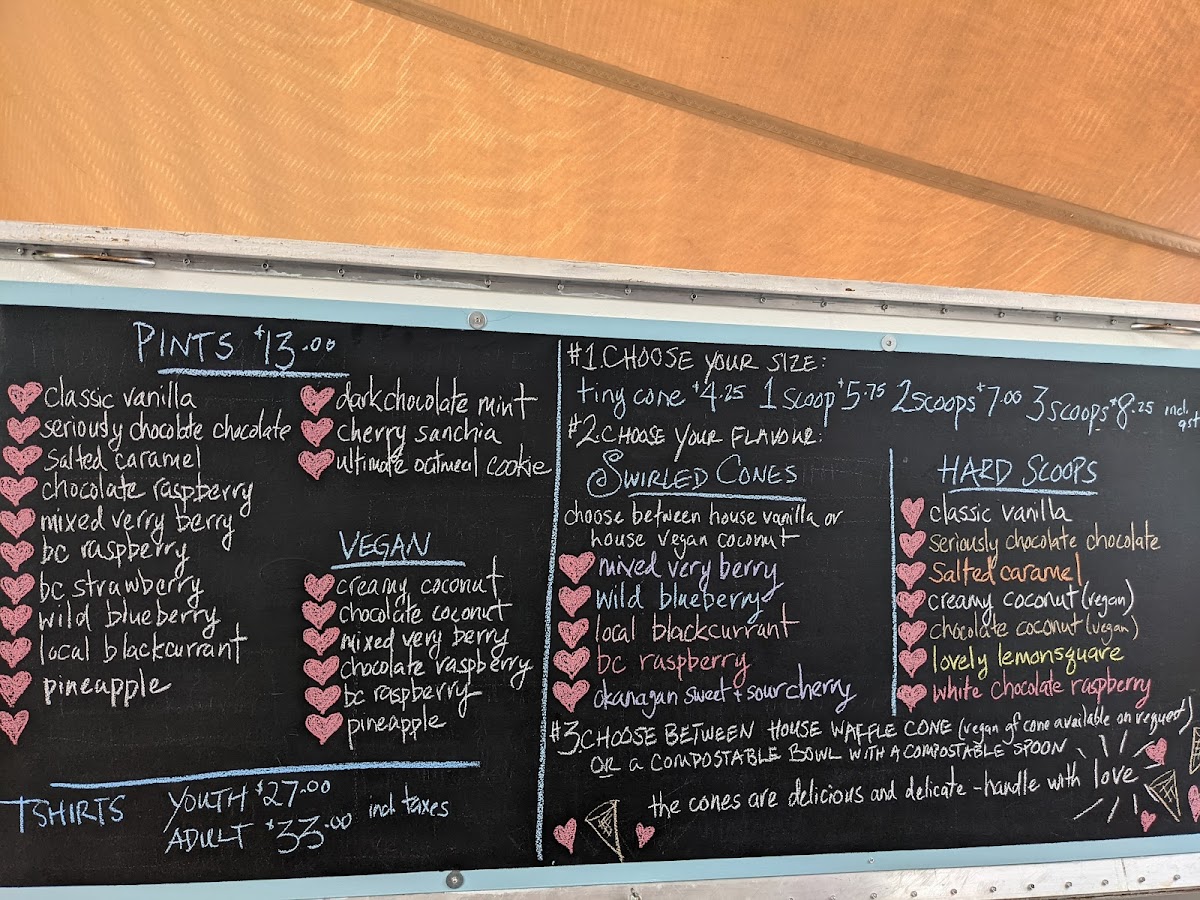 PINTS $13.00
classic vanilla
seriously chocolate chocolate
salted caramel
chocolate raspberry
mixed verry berry
bc raspberry
bc strawberry
wild blueberry
local blackcurrant
pineapple
dark chocolate mint
cherry sanchia
ultimate oatmeal cookie
VEGAN
creamy coconut
chocolate coconut
mixed very berry
chocolate raspberry
bc raspberry
pineapple
TSHIRTS
YOUTH $27.00
ADULT $33.00
incl taxes
#1. CHOOSE YOUR SIZE:
tiny cone $4.25 1 scoop $5.75 2 scoops $7.00 3 scoops $8.25 incl. gst
#2. CHOOSE YOUR FLAVOUR:
SWIRLED CONES
choose between house vanilla or
house vegan coconut
mixed very berry
wild blueberry
local blackcurrant
bc raspberry
okanagan sweet + sour cherry
HARD SCOOPS
classic vanilla
seriously chocolate chocolate
Salted caramel
creamy coconut (vegan)
chocolate coconut (vegan)
lovely lemonsquare
white chocolate raspberry
#3. CHOOSE BETWEEN HOUSE WAFFLE CONE (vegan gf cone available on request)
OR a COMPOSTABLE BOWL WITH A COMPOSTABLE SPOON
the cones are delicious and delicate - handle with love